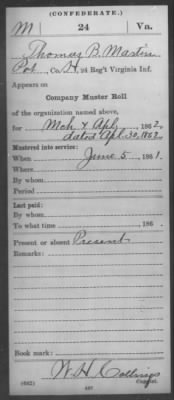 (CONFEDERATE.)
M 24 Va.
Thomas B. Martin
Pvt, Co. H, 24 Reg't Virginia Inf.
Appears on
Company Muster Roll
of the organization named above,
for Mch & Apl, 1862.
dated Apl. 30, 1862
Mustered into service:
When June 5, 1861.
Where
By whom
Period
Last paid:
By whom
To what time , 186 .
Present or absent Present
Remarks:
Book mark:
W. H. Collings
(642) Copyist.